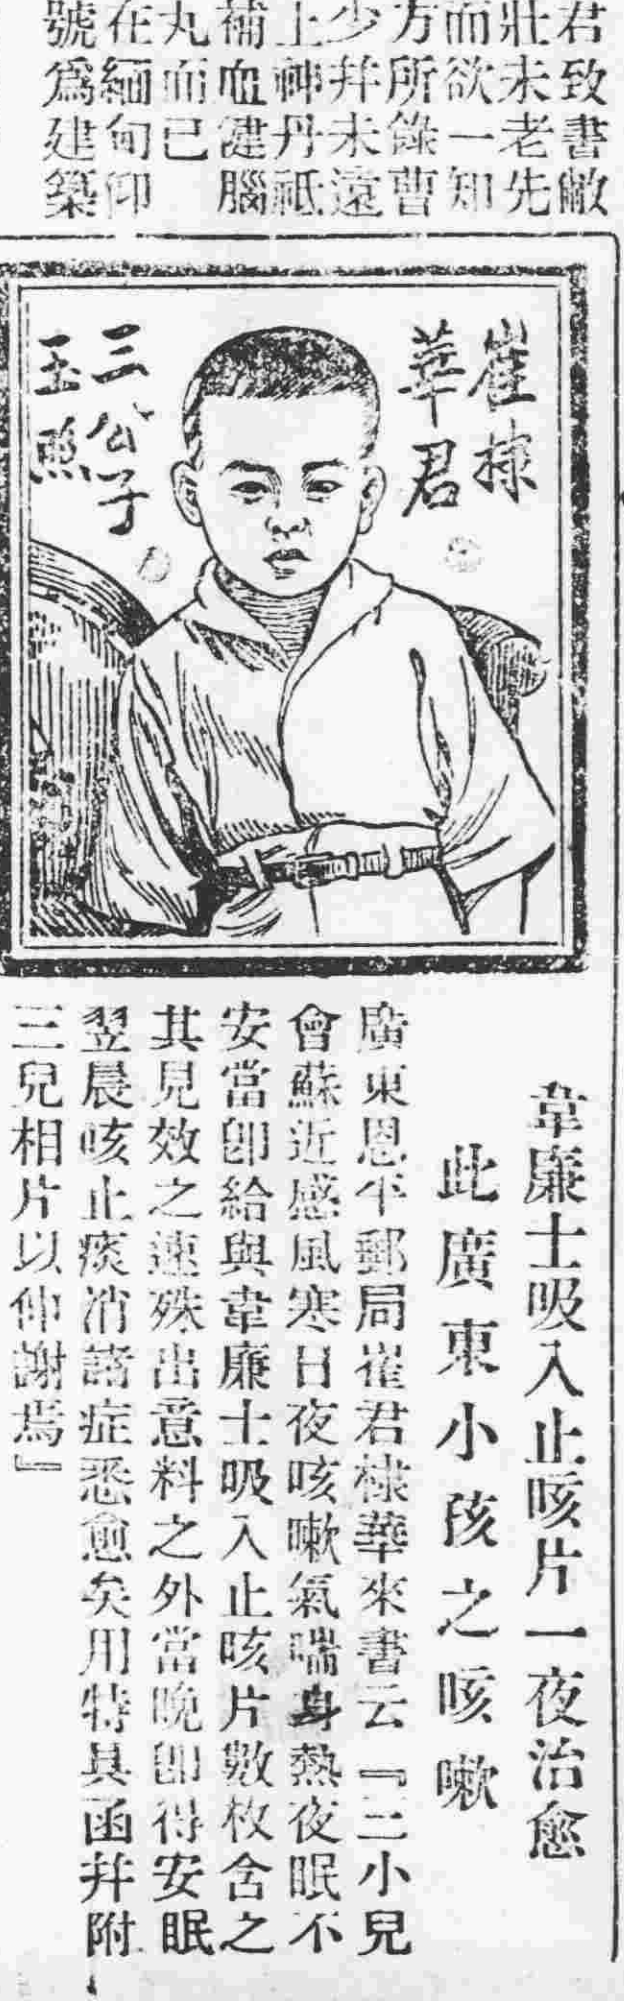 君致書敝
壯未老先
而欲一知
方所錄曹
少幷未遠
上神丹祗
補血健腦
丸而已
在緬甸仰
號爲建築
崔棣
華君
三公子
玉照
韋廉士吸入止咳片一夜治愈
此廣東小孩之咳嗽
廣東恩平郵局崔君棣華來書云『三小兒
會蘇近感風寒日夜咳嗽氣喘身熱夜眠不
安當卽給與韋廉士吸入止咳片數枚含之
其見效之速殊出意料之外當晚卽得安眠
翌晨咳止痰消諸症悉愈矣用特具函幷附
三兒相片以伸謝焉』